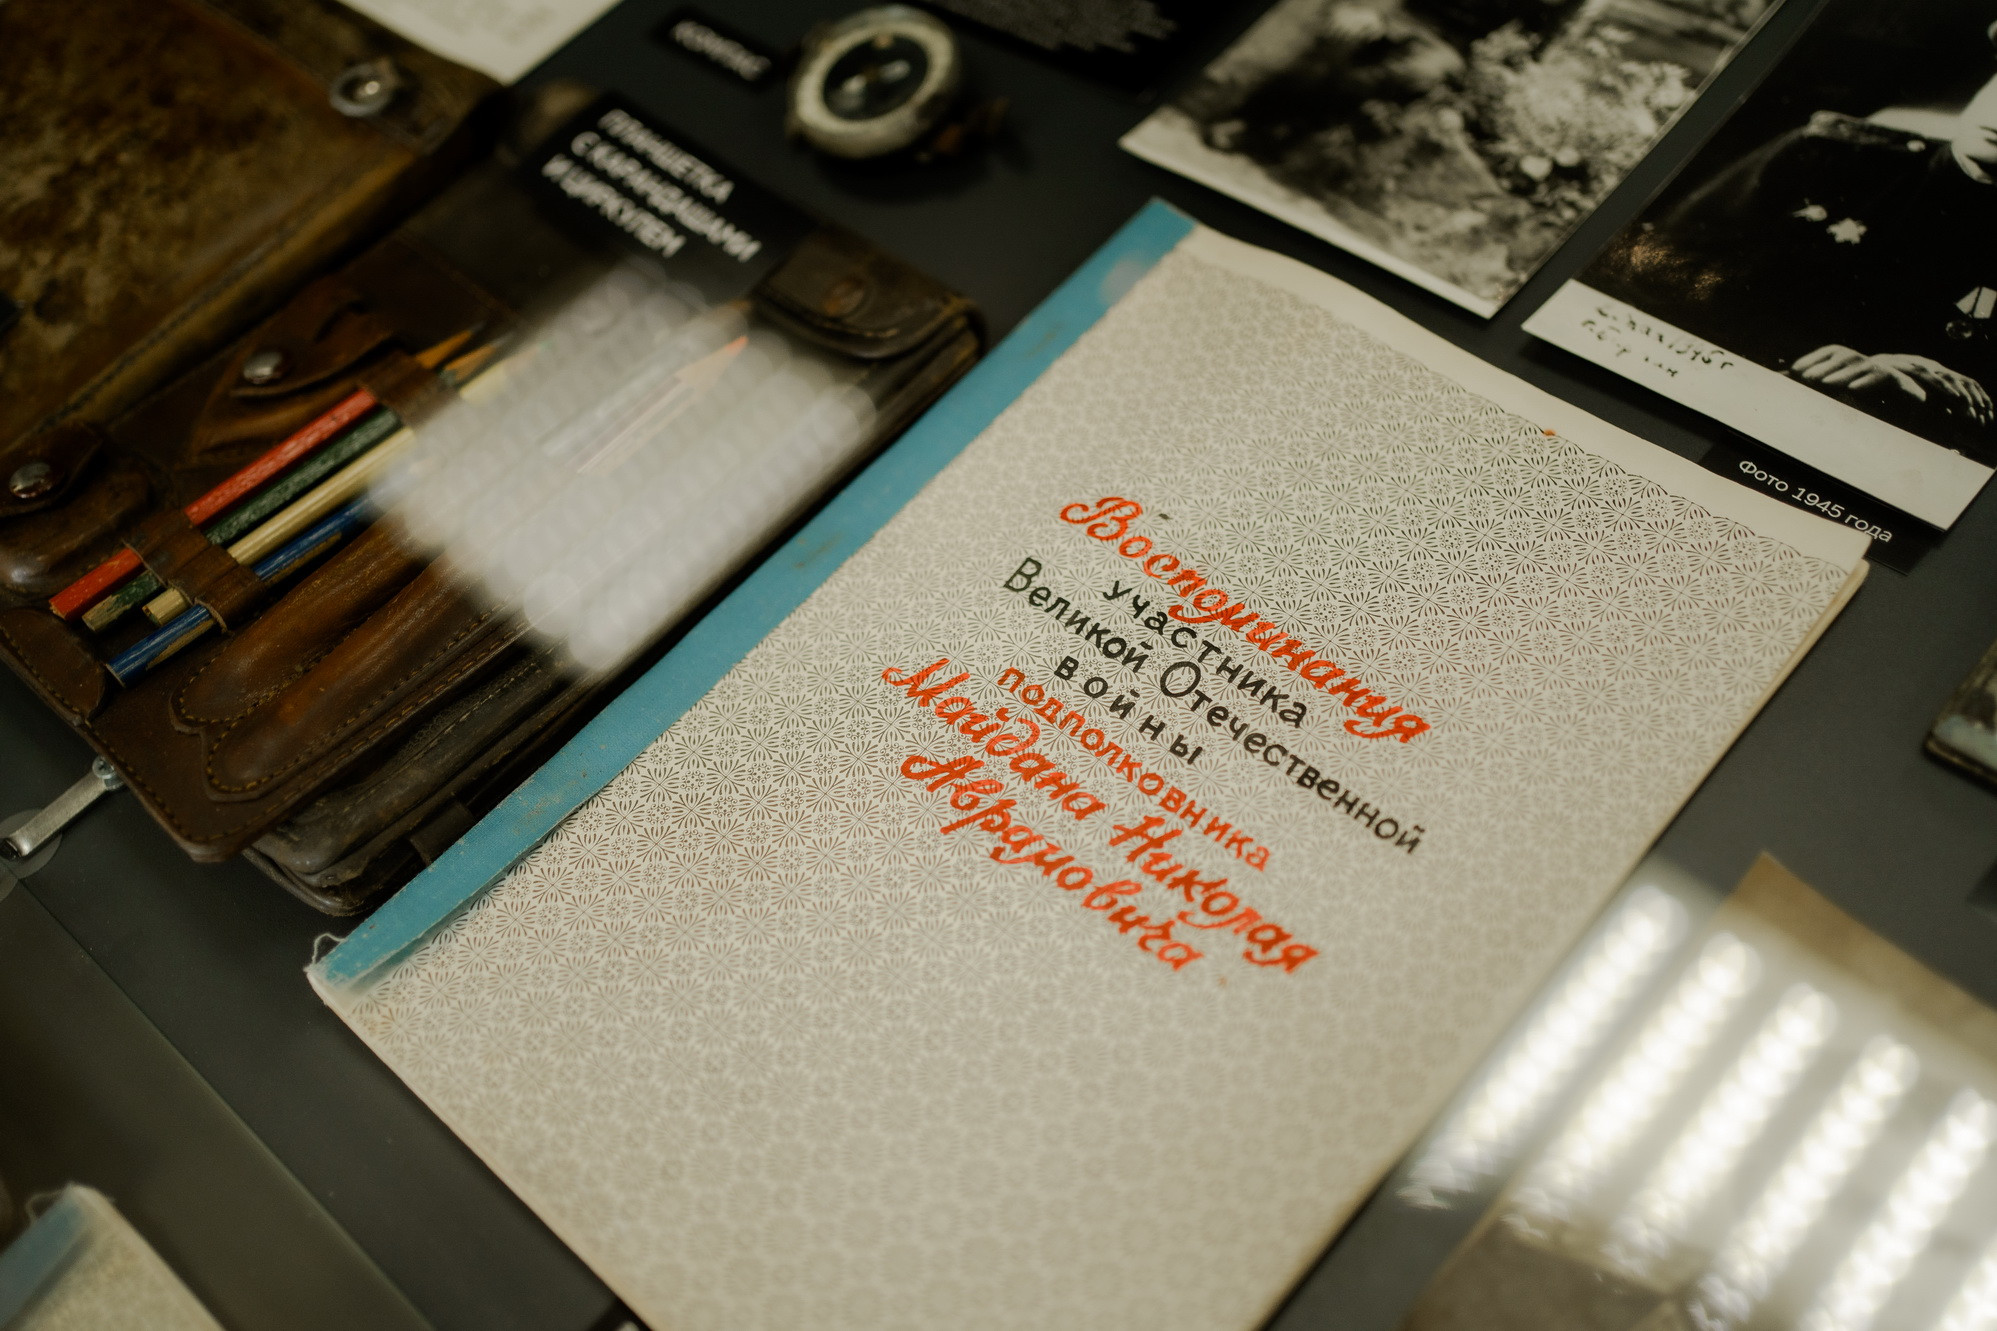 КОМПАС
ПЛАНШЕТКА
С КАРАНДАШАМИ
И ЦИРКУЛЕМ
Воспоминания
участника
Великой Отечественной
войны
подполковника
Майдана Николая
Аврамовича
Фото 1945 года